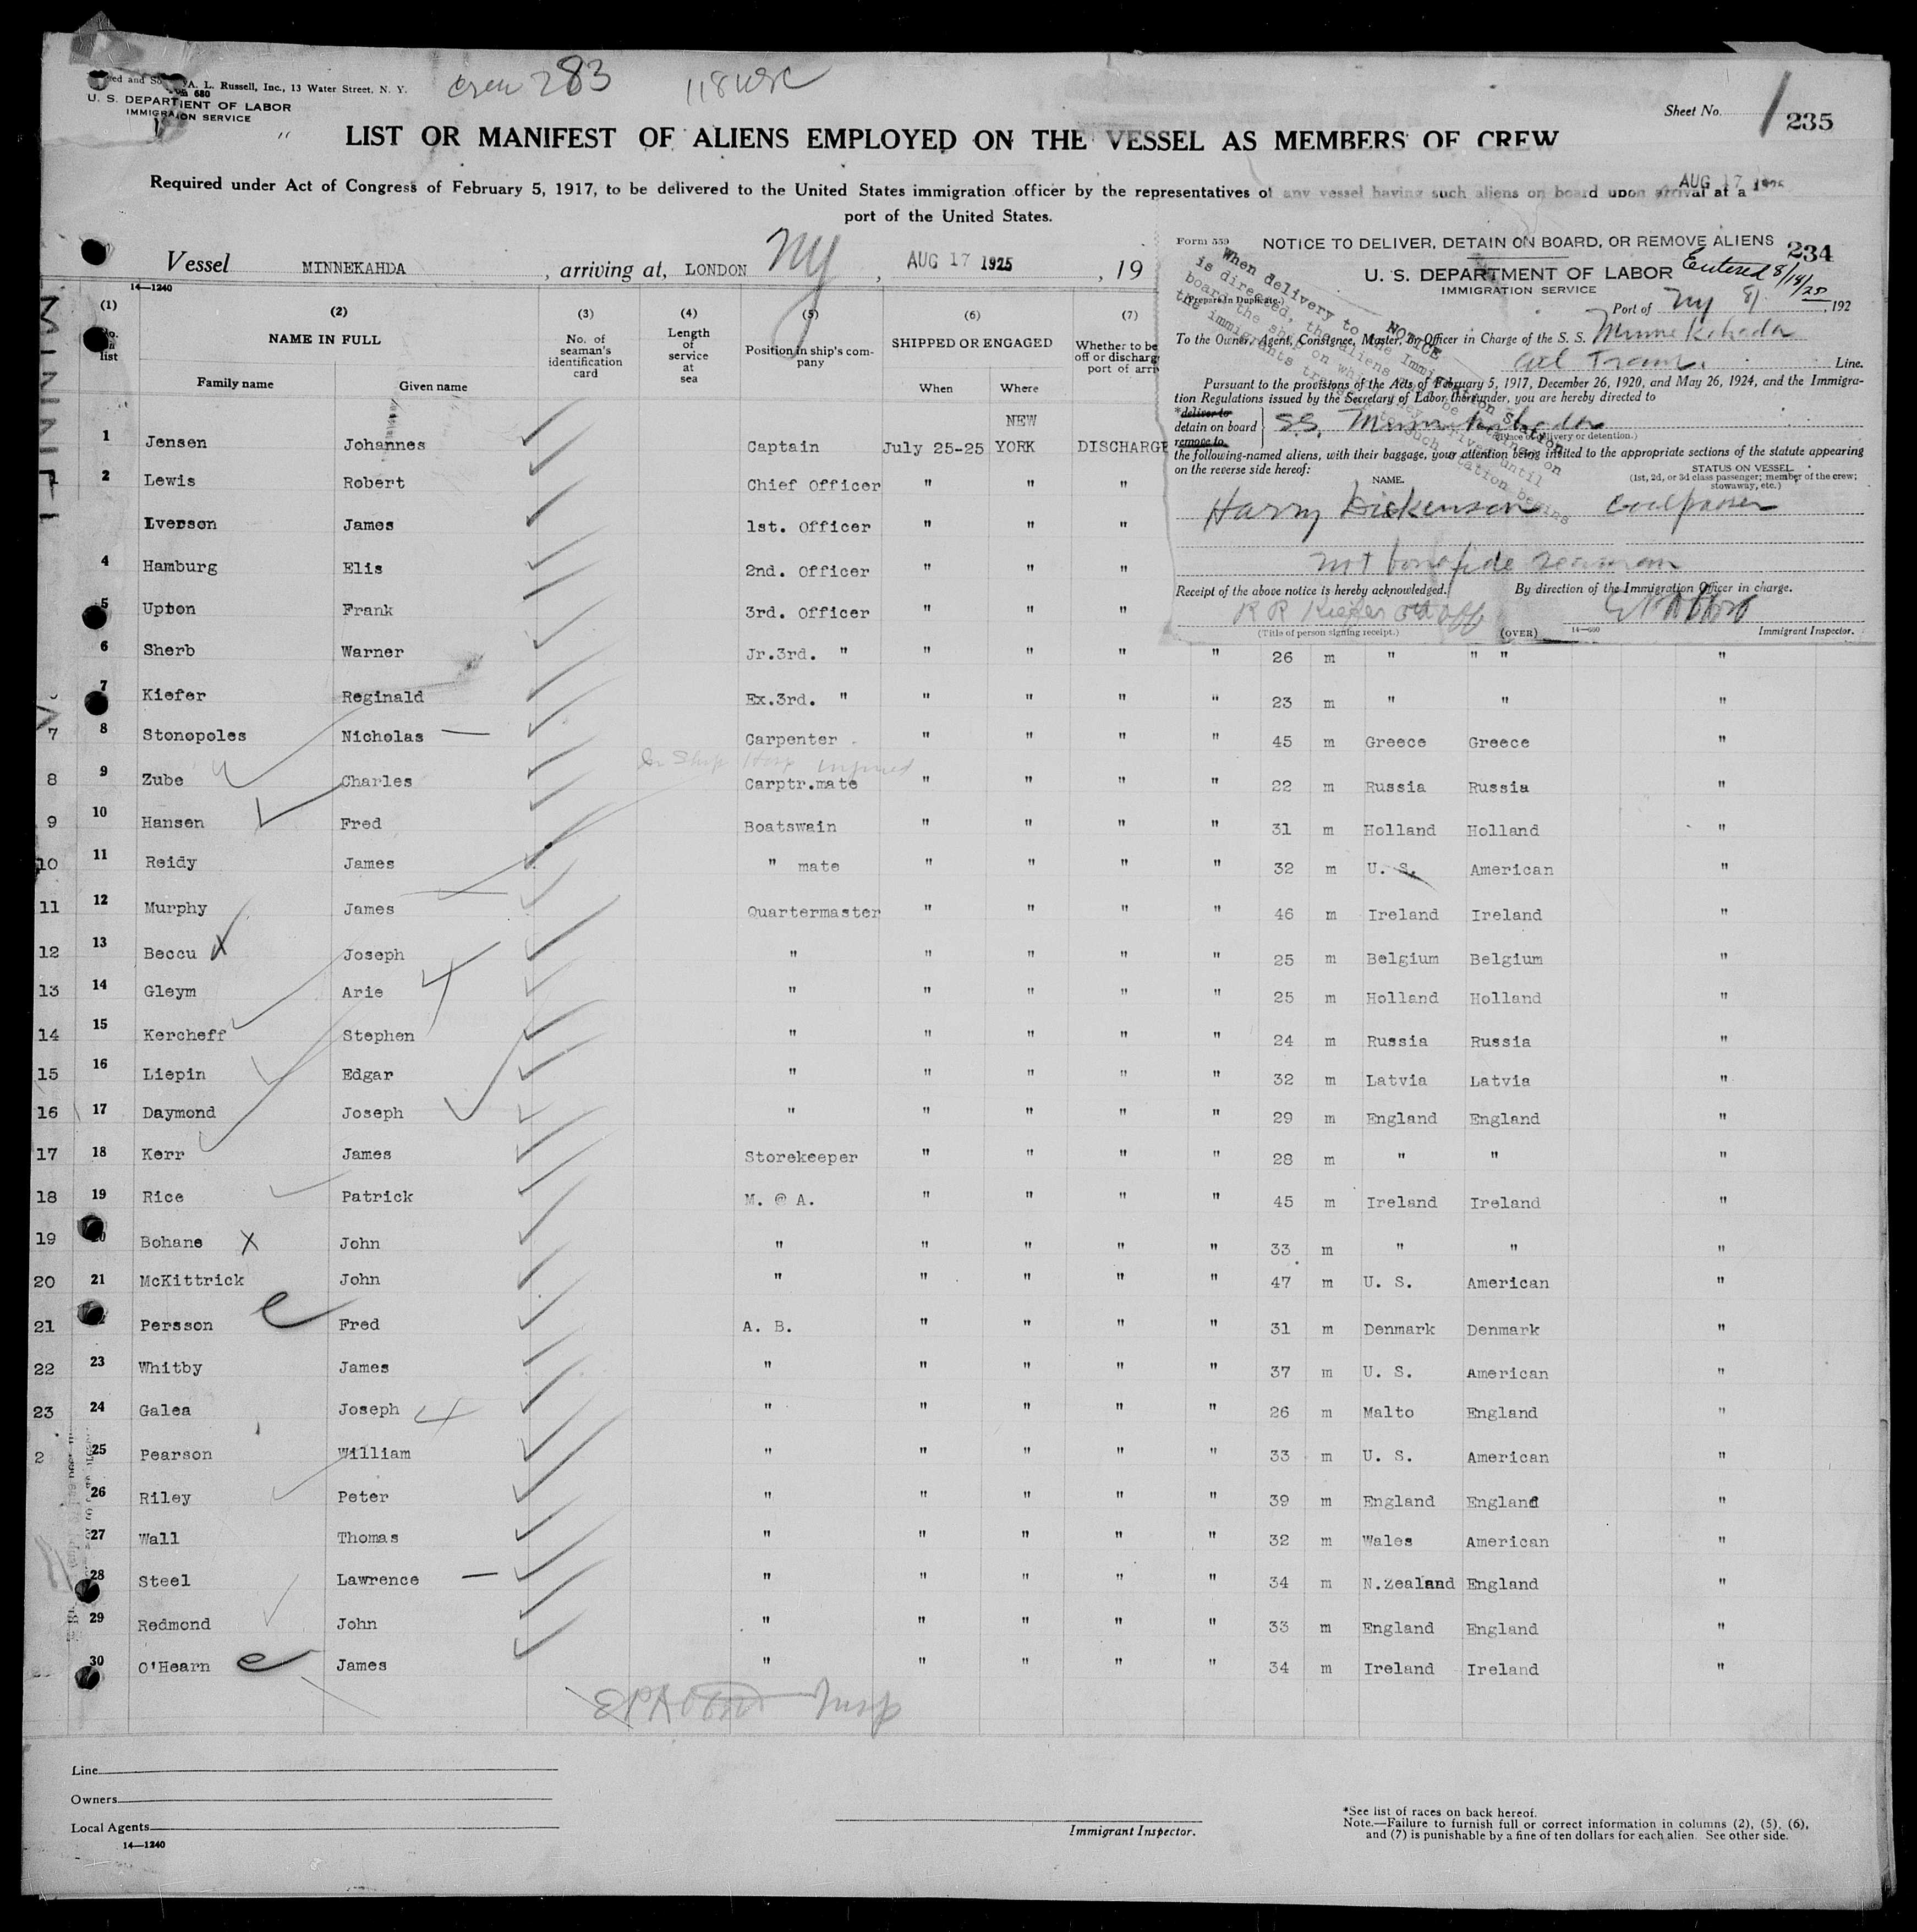 A. L. Russell, Inc., 13 Water Street, N. Y.
crew 283
680
U. S. DEPARTMENT OF LABOR
IMMIGRATION SERVICE
Sheet No. 1 235
LIST OR MANIFEST OF ALIENS EMPLOYED ON THE VESSEL AS MEMBERS OF CREW
AUG 17 1925
Required under Act of Congress of February 5, 1917, to be delivered to the United States immigration officer by the representatives of any vessel having such aliens on board upon arrival at a
port of the United States.
Vessel MINNEKAHDA , arriving at, LONDON NY , AUG 17 1925 , 19
14—1240
(1) (2) (3) (4) (5) (6) (7)
No. in list
NAME IN FULL
Family name Given name
No. of seaman's identification card
Length of service at sea
Position in ship's company
SHIPPED OR ENGAGED
When Where
Whether to be
off or discharg
port of arri
NEW
1 Jensen Johannes Captain July 25-25 YORK DISCHARGE
2 Lewis Robert Chief Officer " " "
Iverson James 1st. Officer " " "
4 Hamburg Elis 2nd. Officer " " "
5 Upton Frank 3rd. Officer " " "
6 Sherb Warner Jr.3rd. " " " " " 26 m " " " "
7 Kiefer Reginald Ex.3rd. " " " " " 23 m " " "
7 8 Stonopoles Nicholas Carpenter " " " " 45 m Greece Greece "
In Ship Hosp injured
8 9 Zube Charles Carptr.mate " " " " 22 m Russia Russia "
9 10 Hansen Fred Boatswain " " " " 31 m Holland Holland "
10 11 Reidy James " mate " " " " 32 m U. S. American "
11 12 Murphy James Quartermaster " " " " 46 m Ireland Ireland "
12 13 Beccu X Joseph " " " " " 25 m Belgium Belgium "
13 14 Gleym Arie " " " " " 25 m Holland Holland "
14 15 Kercheff Stephen " " " " " 24 m Russia Russia "
15 16 Liepin Edgar " " " " " 32 m Latvia Latvia "
16 17 Daymond Joseph " " " " " 29 m England England "
17 18 Kerr James Storekeeper " " " " 28 m " " "
18 19 Rice Patrick M. @ A. " " " " 45 m Ireland Ireland "
19 20 Bohane X John " " " " " 33 m " " "
20 21 McKittrick John " " " " " 47 m U. S. American "
21 Persson Fred A. B. " " " " 31 m Denmark Denmark "
22 23 Whitby James " " " " " 37 m U. S. American "
23 24 Galea Joseph " " " " " 26 m Malto England "
2 25 Pearson William " " " " " 33 m U. S. American "
26 Riley Peter " " " " " 39 m England England "
27 Wall Thomas " " " " " 32 m Wales American "
28 Steel Lawrence " " " " " 34 m N.Zealand England "
29 Redmond John " " " " " 33 m England England "
30 O'Hearn James " " " " " 34 m Ireland Ireland "
Insp
Line
Owners
Local Agents
14—1240
Immigrant Inspector.
*See list of races on back hereof.
Note.—Failure to furnish full or correct information in columns (2), (5), (6),
and (7) is punishable by a fine of ten dollars for each alien. See other side.
Form 559
NOTICE TO DELIVER, DETAIN ON BOARD, OR REMOVE ALIENS 234
U. S. DEPARTMENT OF LABOR
IMMIGRATION SERVICE
Entered
(Prepare in Duplicate.)
Port of NY , 192
To the Owner, Agent, Consignee, Master, or Officer in Charge of the S. S. Minnekahda
Atl Trans. Line.
Pursuant to the provisions of the Acts of February 5, 1917, December 26, 1920, and May 26, 1924, and the Immigra-
tion Regulations issued by the Secretary of Labor thereunder, you are hereby directed to
*deliver to
detain on board S.S. Minnekahda
remove to
(Place of delivery or detention.)
the following-named aliens, with their baggage, your attention being invited to the appropriate sections of the statute appearing
on the reverse side hereof:
NAME.
STATUS ON VESSEL
(1st, 2d, or 3d class passenger; member of the crew;
stowaway, etc.)
Harry Dickenson Coalpasser
not bonafide seaman
Receipt of the above notice is hereby acknowledged. By direction of the Immigration Officer in charge.
R R Kiefer
(Title of person signing receipt.) (OVER) Immigrant Inspector.
NOTICE
When delivery to the Immigration Station
is directed, the aliens